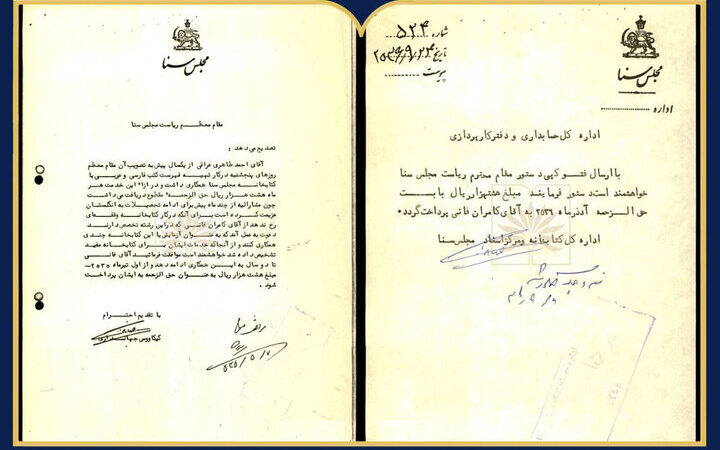 مجلس سنا
شماره ۵۲۴
تاریخ ۲۵۳۶/۹/۲۴
پیوست
اداره
اداره کل حسابداری و دفتر کارپردازی
با ارسال فتوکپی دستور مقام محترم ریاست مجلس سنا
خواهشمند است دستور فرمایند مبلغ هشتهزار ریال بابت
حق الزحمه آذرماه ۲۵۳۶ به آقای کامران فانی پرداخت گردد۰
اداره کل کتابخانه و مرکز اسناد مجلس سنا
مجلس سنا
مقام معظم ریاست مجلس سنا
تصدیع می دهد:
آقای احمد طاهری عراقی از یکسال پیش به تصویب آن مقام معظم
روزهای پنجشنبه در کار تهیه فهرست کتب فارسی و عربی با
کتابخانه مجلس سنا همکاری داشت و در ازاء این خدمت هر
ماه هشت هزار ریال حق الزحمه مقطوع دریافت می داشت
چون مشارالیه از چند ماه پیش برای ادامه تحصیلات به انگلستان
عزیمت کرده است برای آنکه در کار کتابخانه وقفه‌ای
رخ ندهد از آقای کامران فانی که در این رشته تخصص دارند
دعوت به عمل آمد که به عنوان آزمایش با این کتابخانه چندی
همکاری کنند و از آنجا که خدمات ایشان برای کتابخانه مفید
تشخیص داده شد خواهشمند است موافقت فرمائید آقای فانی
تا دو سال به این همکاری ادامه دهد و از اول تیرماه ۲۵۳۵
مبلغ هشت هزار ریال به عنوان حق الزحمه به ایشان پرداخت
شود
با تقدیم احترام
کیکاووس جهانداری